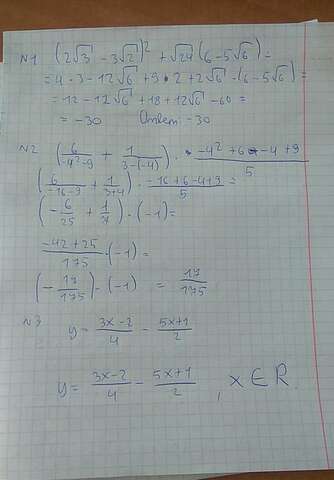 N1 (2√3 - 3√2)² + √24 (6-5√6) =
= 4·3 - 12√6 + 9·2 + 2√6 · (6-5√6) =
= 12 - 12√6 + 18 + 12√6 - 60 =
= -30 Ответ: -30
N2 (6/(-4²-9) + 1/(3-(-4))) · (-4²+6·-4+9)/5
(6/(-16-9) + 1/(3+4)) · (-16+6-4+9)/5 =
(-6/25 + 1/7) · (-1) =
(-42+25)/175 · (-1) =
(-17/175) · (-1) = 17/175
N3 y = (3x-2)/4 - (5x+1)/2
y = (3x-2)/4 - (5x+1)/2, x ∈ R.